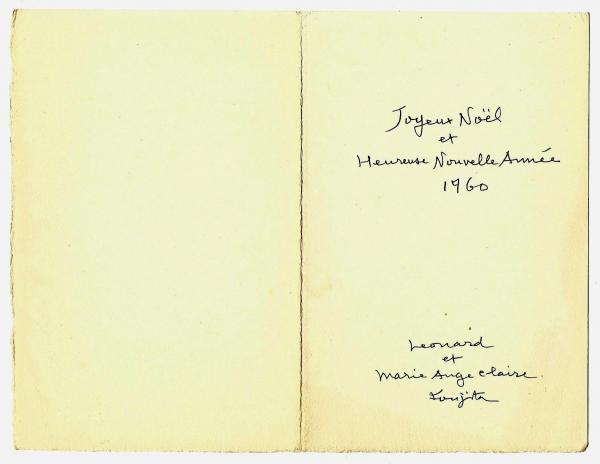 Joyeux Noël
et
Heureuse Nouvelle Année
1960
Leonard
et
Marie Ange Claire
Foujita